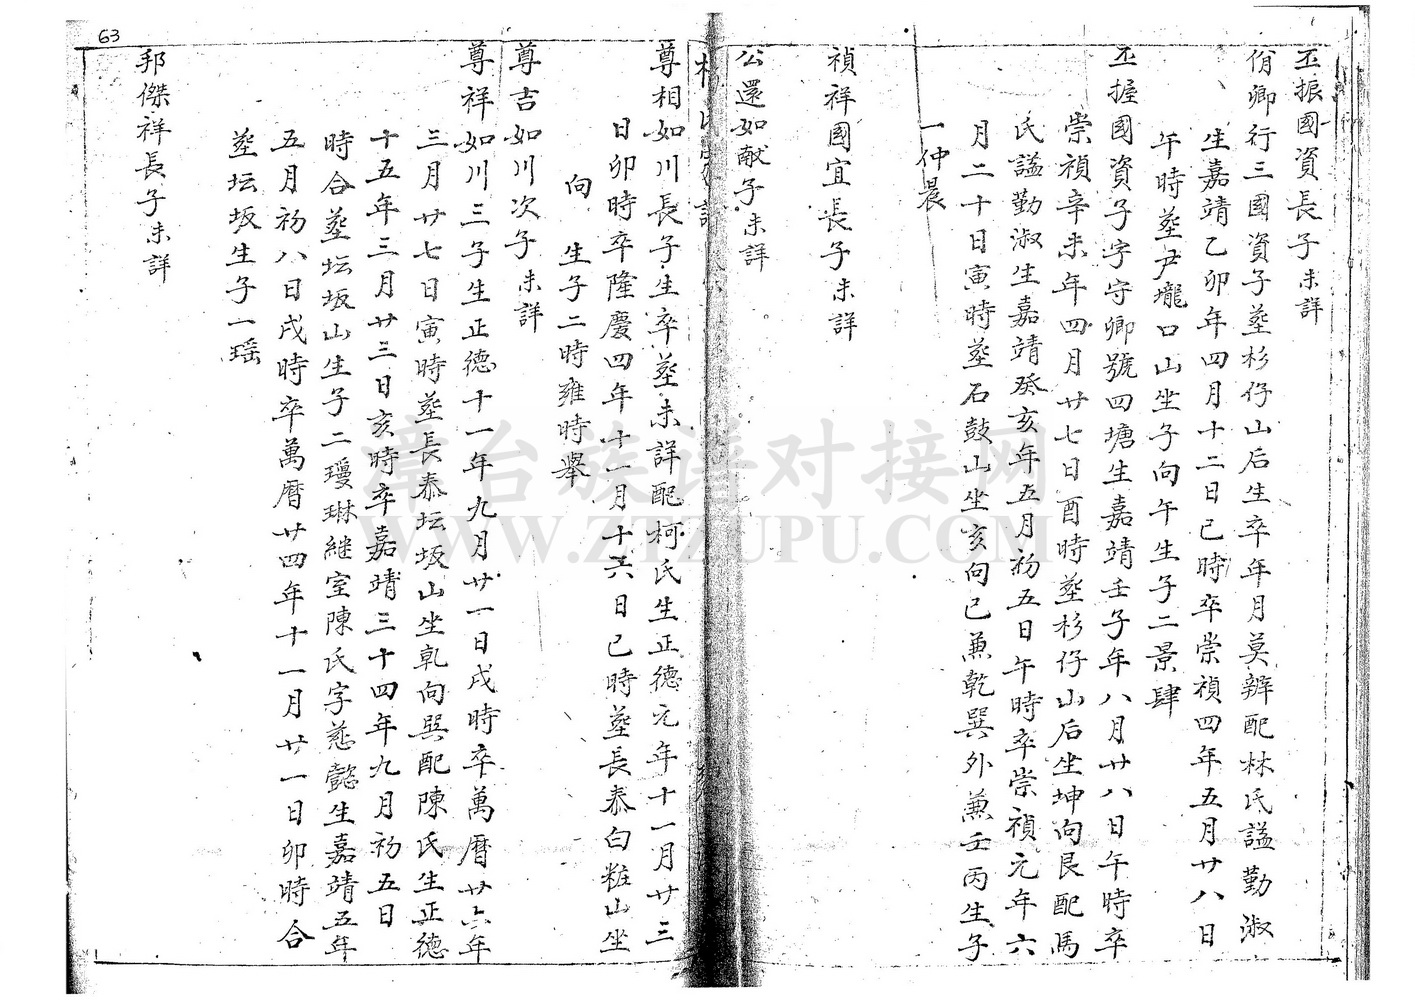 丕振國資長子未詳
佾卿行三國資子塟杉仔山后生卒年月莫辨配林氏謚勤淑
生嘉靖乙卯年四月十二日巳時卒崇禎四年五月廿八日
午時塟尹壠口山坐子向午生子二景肆
丕握國資子字守卿號四塘生嘉靖壬子年八月廿八日午時卒
崇禎辛未年四月廿七日酉時塟杉仔山后坐坤向艮配馬
氏謚勤淑生嘉靖癸亥年五月初五日午時卒崇禎元年六
月二十日寅時塟石鼓山坐亥向巳兼乾巽外兼壬丙生子
一仲晨
禎祥國宜長子未詳
公還如献子未詳
尊相如川長子生卒塟未詳配柯氏生正德元年十一月廿三
日卯時卒隆慶四年十一月十六日巳時塟長泰白粧山坐
向 生子二時雍時舉
尊吉如川次子未詳
尊祥如川三子生正德十一年九月廿一日戌時卒萬曆廿六年
三月廿七日寅時塟長泰坛坂山坐乹向巽配陳氏生正德
十五年三月廿三日亥時卒嘉靖三十四年九月初五日
時合塟坛坂山生子二瓊琳継室陳氏字慈懿生嘉靖五年
五月初八日戌時卒萬曆廿四年十一月廿一日卯時合
塟坛坂生子一瑶
邦傑祥長子未詳
63
漳台族谱对接网
WWW.ZTZUPU.COM